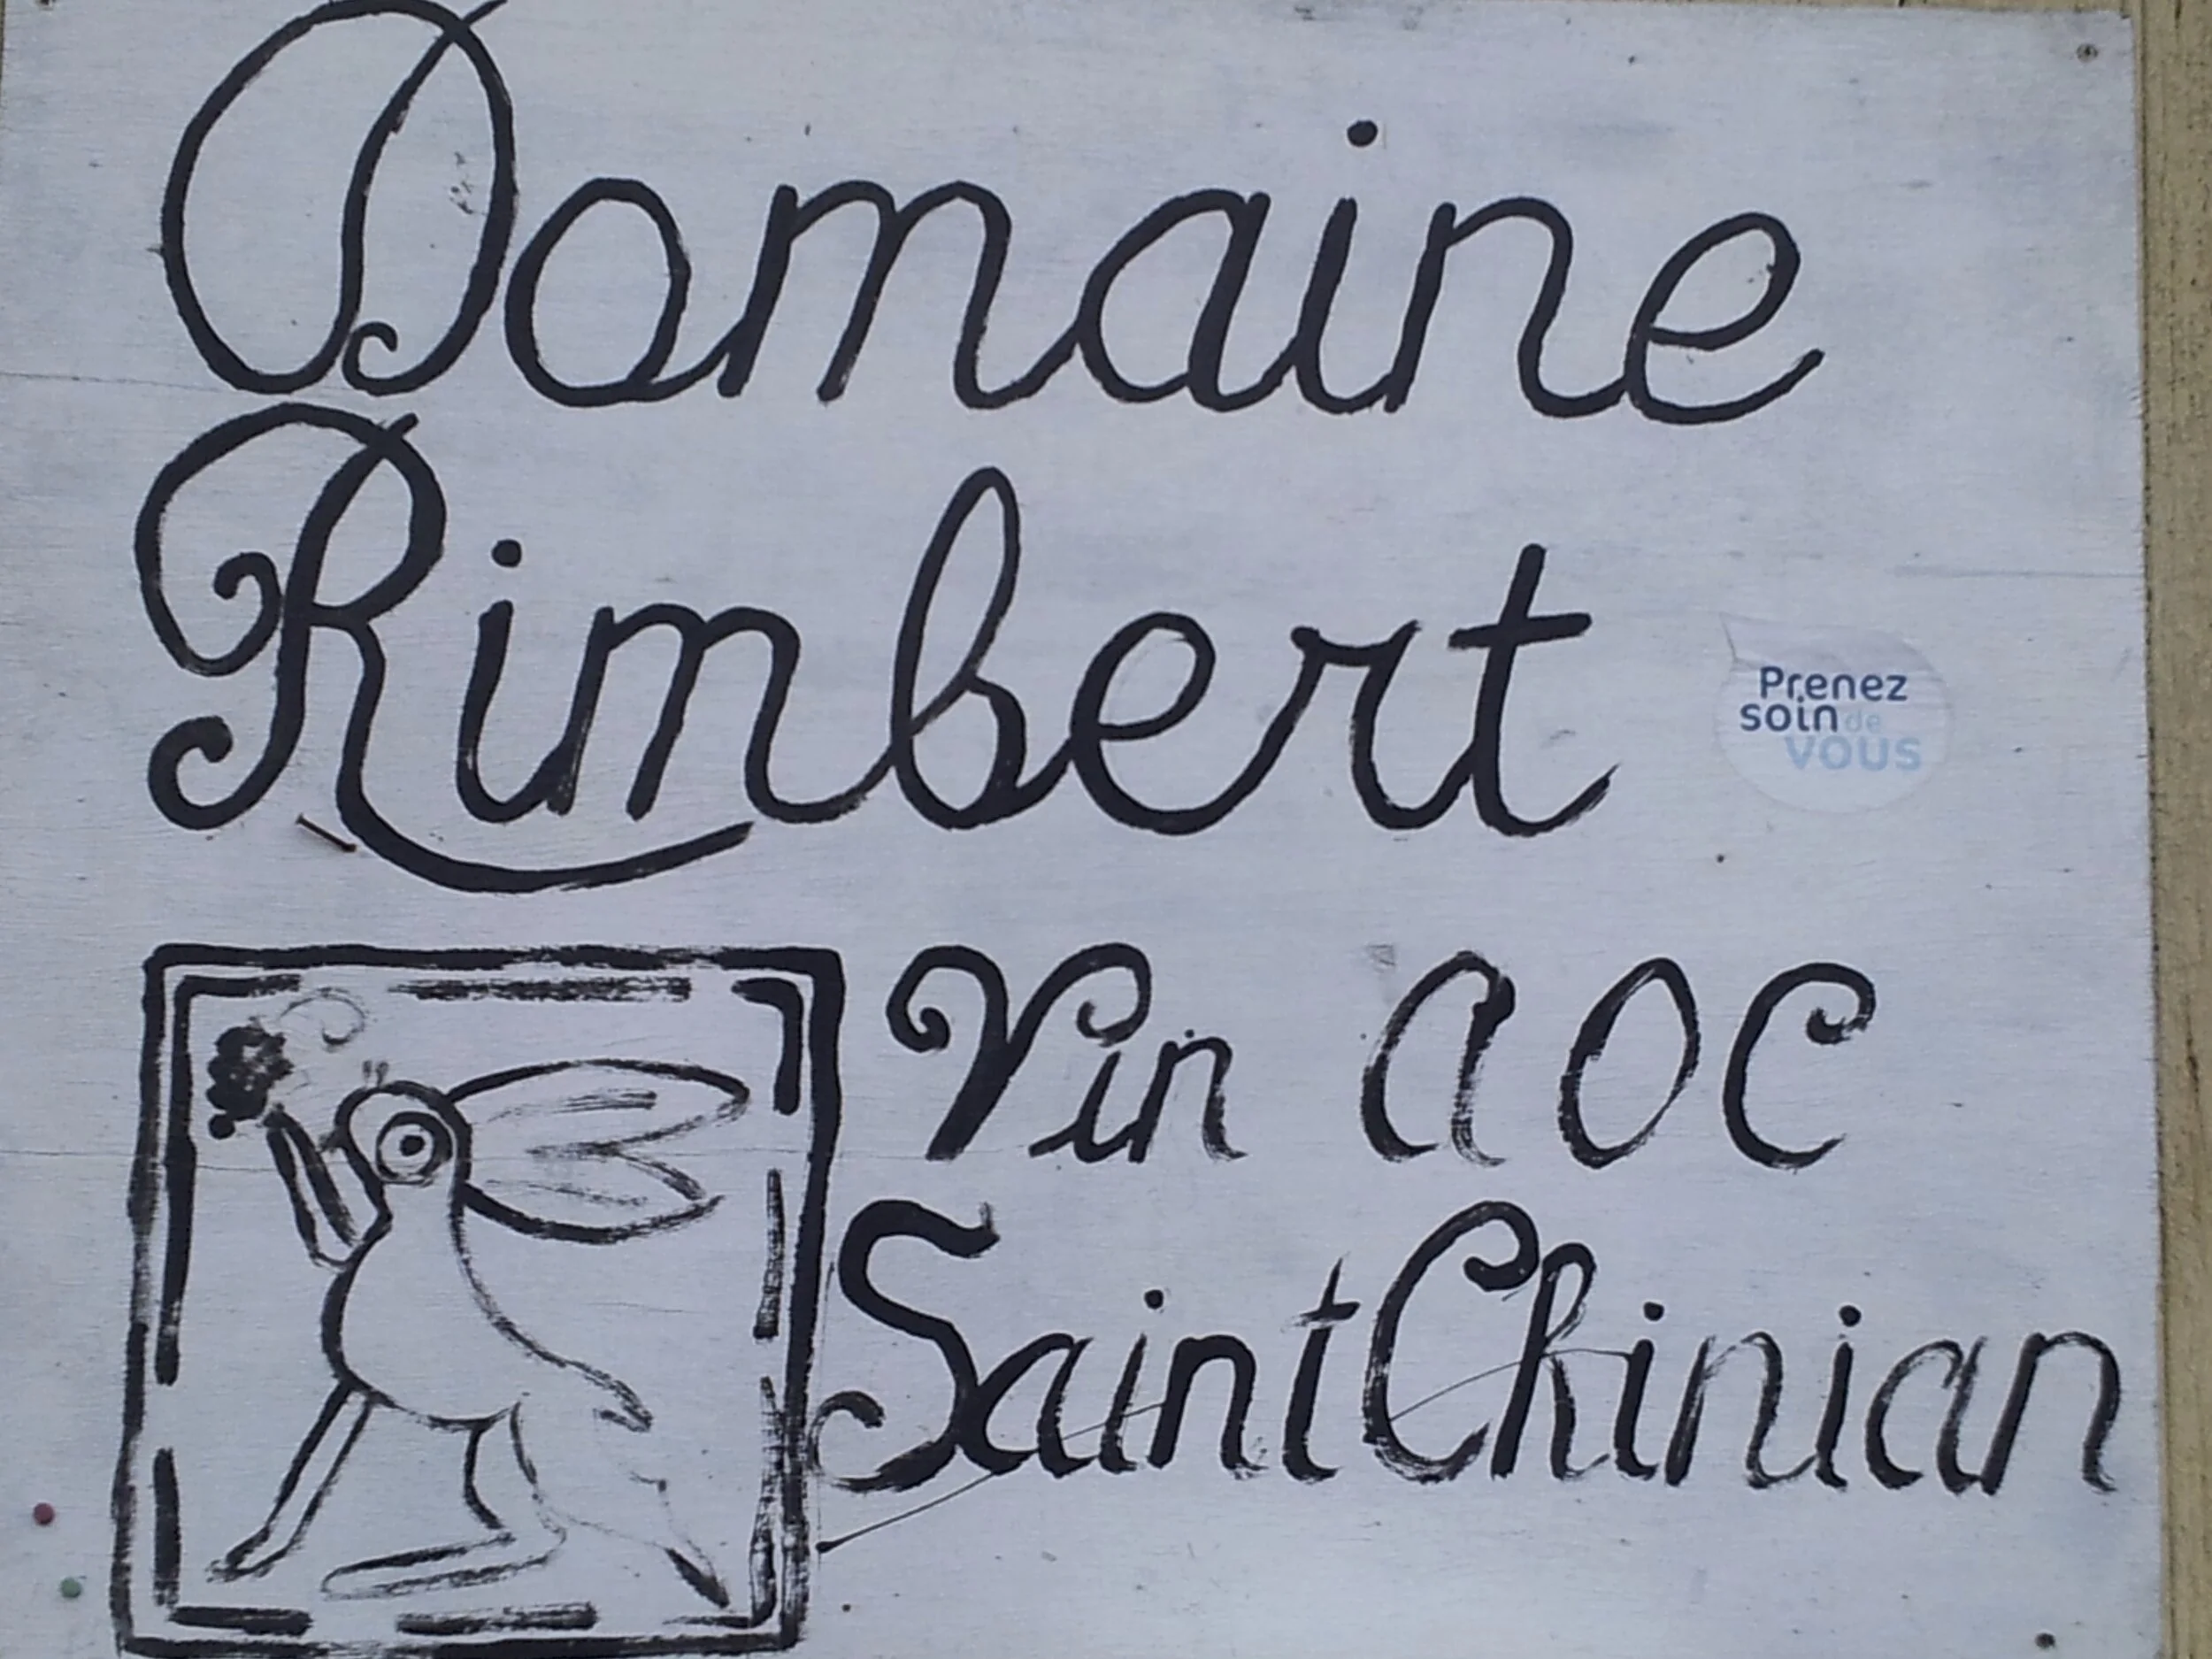 Domaine
Rimbert
Prenez
soin de
vous
Vin AOC
Saint Chinian